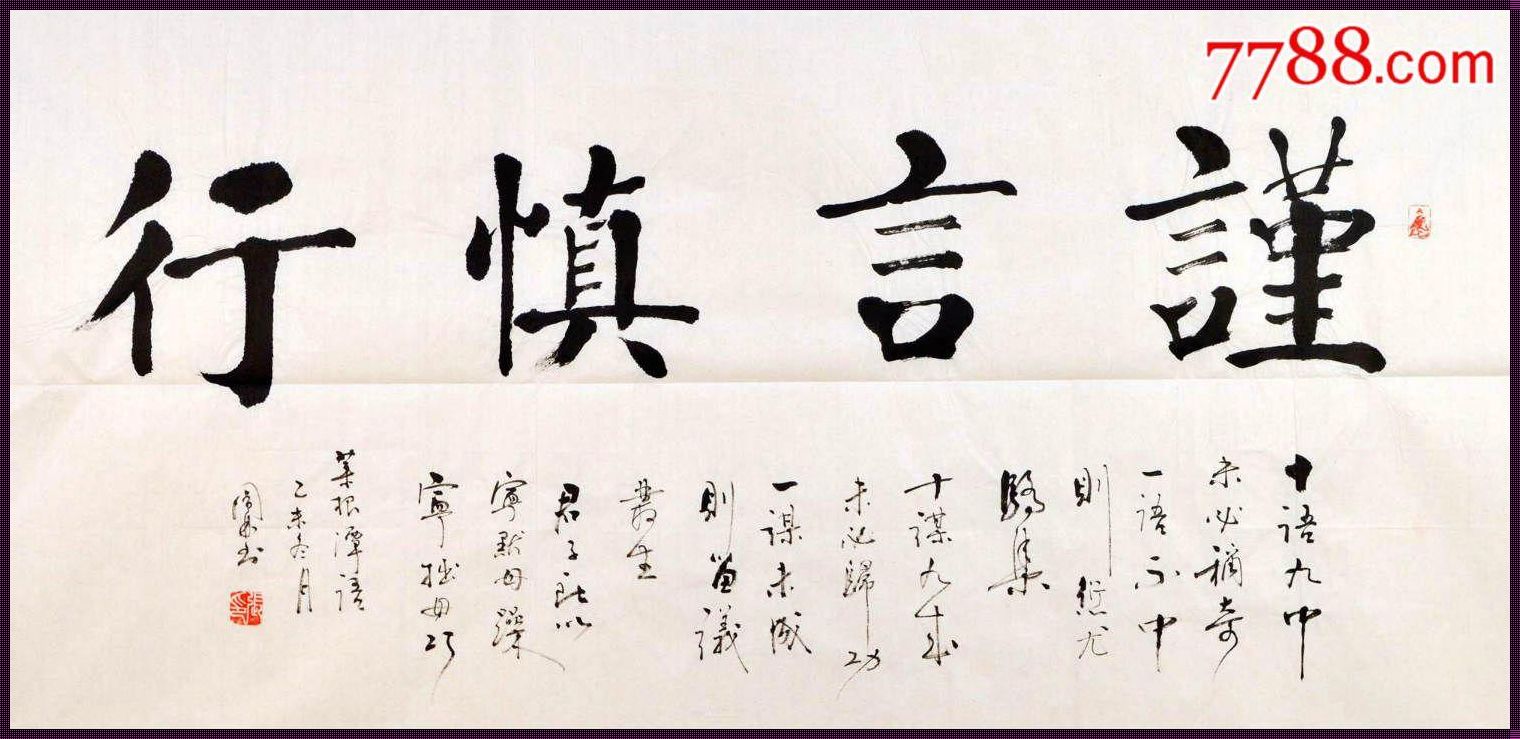 7788.com
謹言慎行
十語九中
未必稱奇
一語不中
則愆尤
駢集
十謀九成
未必歸功
一謀未成
則訾議
叢生
君子所以
寧默毋躁
寧拙毋巧
菜根潭語
乙未冬月
书